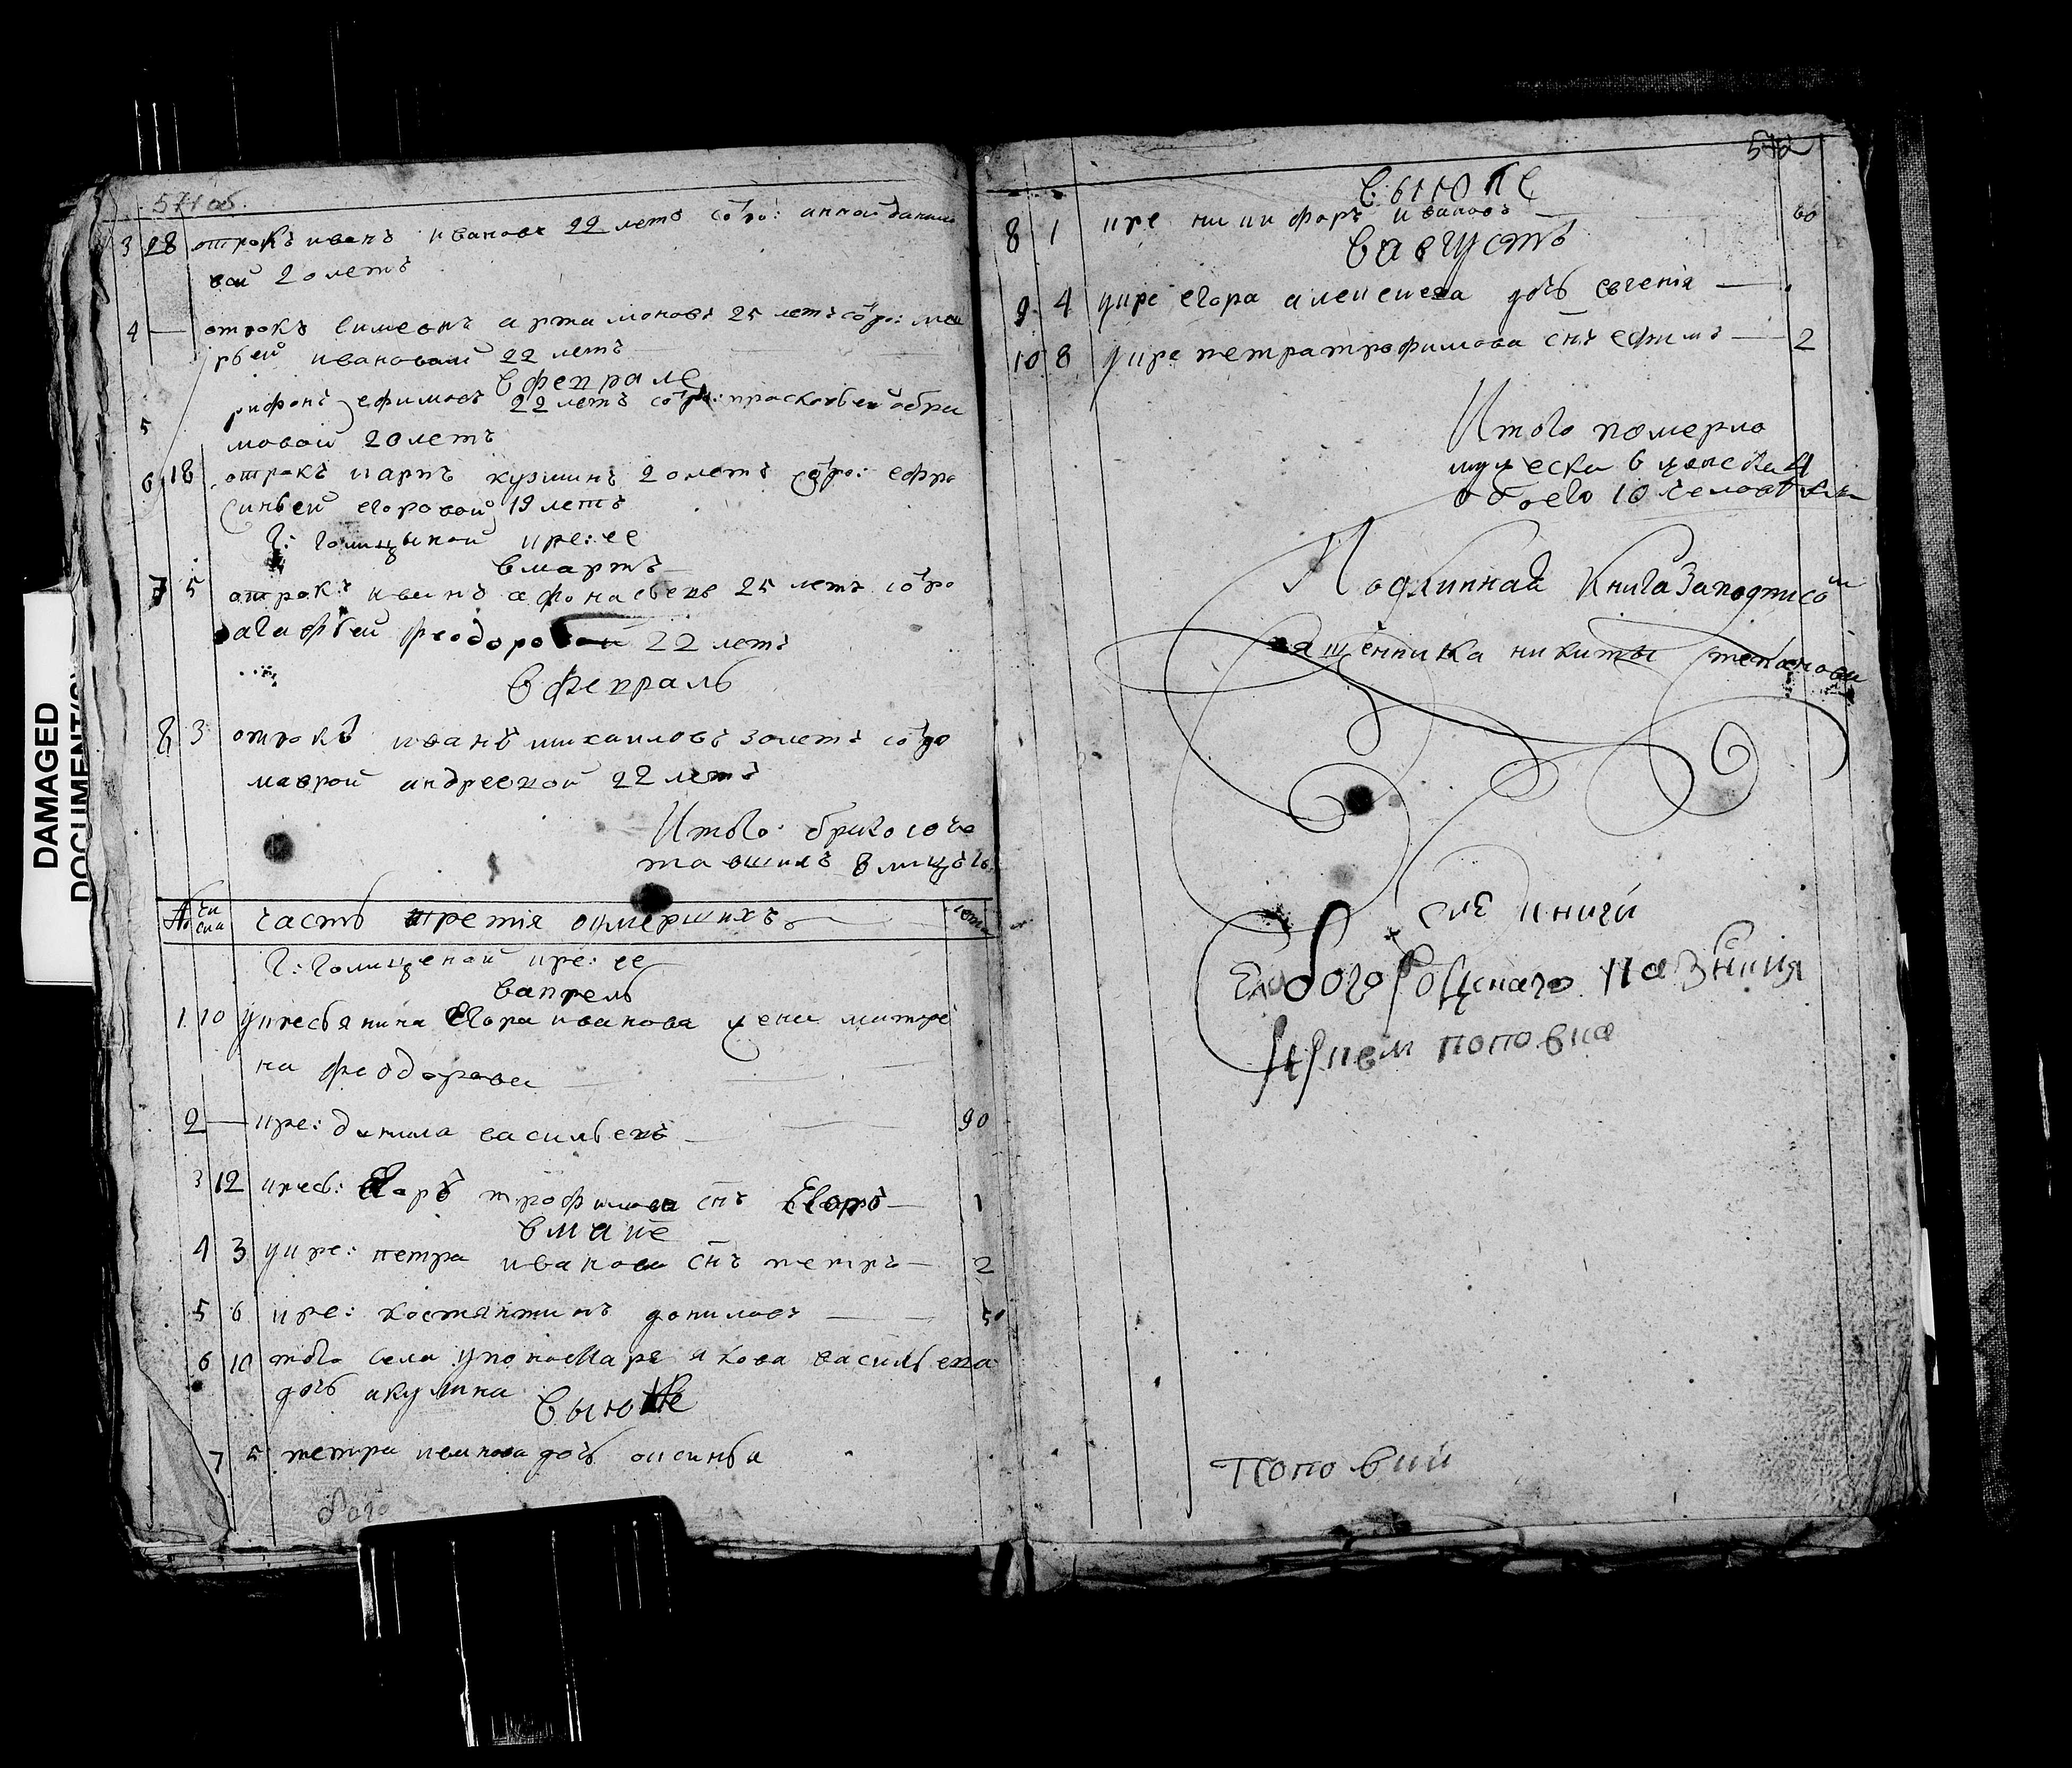 571 об.
3 28 отрокъ иванъ ивановъ 22 летъ со отро: анной данило
вой 20 летъ
4 — отрокъ симеонъ артамоновъ 25 летъ со отро: ма
рьей ивановой 22 летъ
в феврале
5 ефимовъ 22 летъ со отро: прасковьей абра
мовой 20 летъ
6 18 отрокъ карпъ кузминъ 20 летъ со отро: ефро
синьей егоровой 19 летъ
г: голицыной кре: ее
в мартъ
7 5 отрокъ иванъ афонасьевъ 25 летъ со отро
агафьей феодоровой 22 летъ
в февраль
8 3 отрокъ иванъ михаиловъ 30 летъ со отро
маврой андреевой 22 летъ
Итого: брако соче
тавшихъ 8
№ чи
сла часть третія оумершихъ лета
г: голицыной кре: ее
в апрель
1 10 у кресьянина Егора иванова жена матре
на феодорова
2 — кре: данила васильевъ 90
3 12 кресь: трофимова снъ Егоръ 1
в мане
4 3 у кре: петра иванова снъ петръ 2
5 6 кре: костянтинъ даниловъ 50
6 10 того села у пономаря якова васильева
дочь акулина
в июне
7 5 петра иванова дочь аксинья
бого
572
в июле
8 1 кре никифоръ ивановъ 60
в августъ
9 4 у кре егора алексеева дочь евгенія
10 8 у кре петра трофимова снъ ефимъ 2
Итого померло
мужеска 6 женска 4
обоего 10 человекъ
Подлинная книга за подписомъ
священника никиты степанова
сие книги
богородскаго
попо вна
попо вии